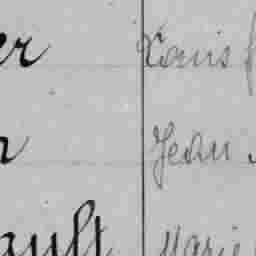 er Louis
n Jean
ault Marie